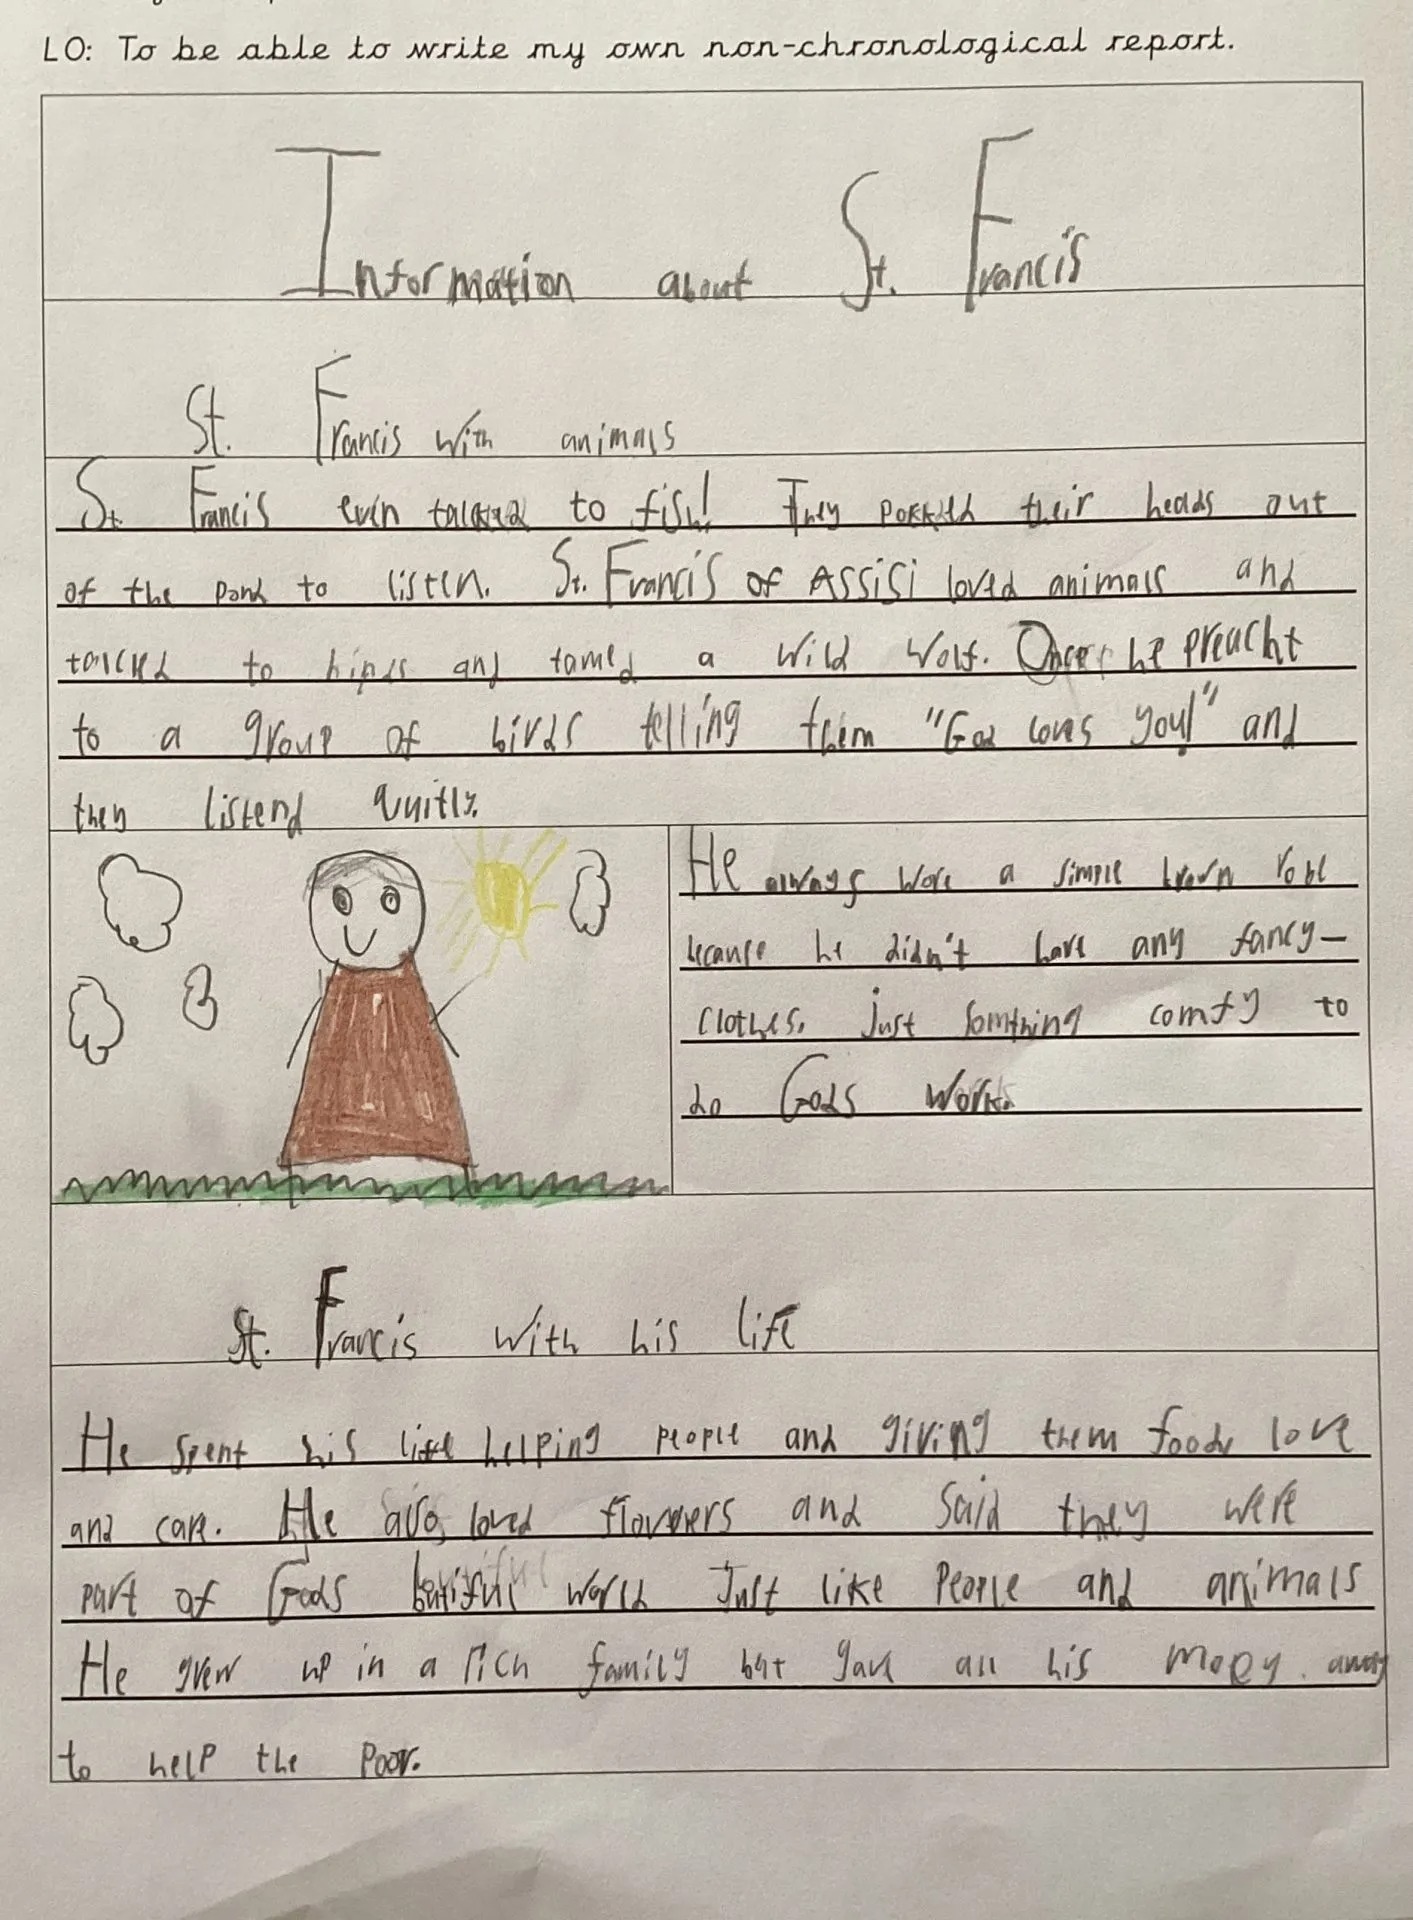 LO: To be able to write my own non-chronological report.
Information about St. Francis
St. Francis with animals
St. Francis even talked to fish! They pokked their heads out
of the pond to listen. St. Francis of Assisi loved animals and
talked to and tamed a wild wolf. Once he preacht
to a group of birds telling them "God loves you!" and
they listend quitly.
He always wore a simple brown robe
because he didn't have any fancy-
clothes. Just somthing comfy to
do Gods work.
St. Francis with his life
He spent his life helping people and giving them food, love
and care. He also loved flowers and said they were
part of Gods world Just like People and animals
He grew up in a rich family but gave all his away
to help the Poor.